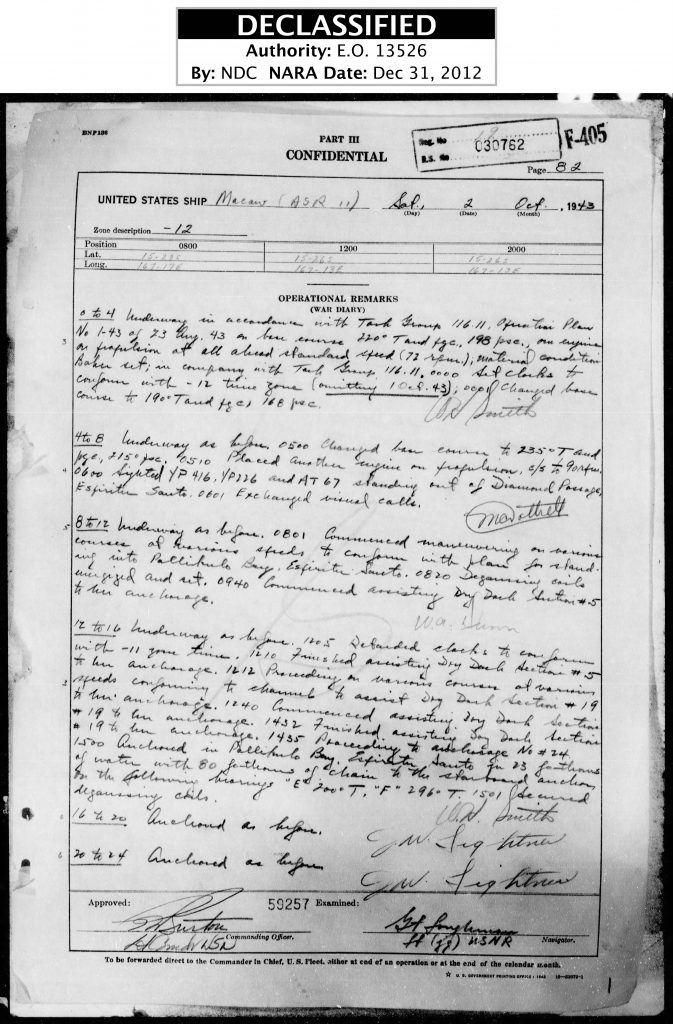 DECLASSIFIED
Authority: E.O. 13526
By: NDC NARA Date: Dec 31, 2012
BNP136
PART III
CONFIDENTIAL
Reg. No
030762
R.S. No
F-405
Page 82
UNITED STATES SHIP Macaw (ASR 11) Sat., 2 Oct., 1943
(Day) (Date) (Month)
Zone description -12
Position 0800 1200 2000
Lat.
Long.
OPERATIONAL REMARKS
(WAR DIARY)
0 to 4 Underway in accordance with Task Group 116.11, Operation Plan
No 1-43 of 23 Aug. 43 on base course 220° T and pgc, 198 psc., one engine
on propulsion at all ahead standard speed (72 rpm.); material condition
Baker set; in company with Task Group 116.11, 0000 Set clocks to
conform with -12 time zone (omitting 1 Oct. 43); 0001 Changed base
course to 190° T and pgc, 168 psc.
W.H. Smith
4 to 8 Underway as before. 0500 Changed base course to 235° T and
pgc, 215° psc. 0510 Placed another engine on propulsion, c/s to 90 rpm.
0600 Sighted YP 416, YP226 and AT 67 standing out of Diamond Passage,
Espiritu Santo. 0601 Exchanged visual calls.
8 to 12 Underway as before. 0801 Commenced maneuvering on various
courses at various speeds to conform with plans for stand-
ing into Pallikulo Bay, Espiritu Santo. 0820 Degaussing coils
energized and set. 0940 Commenced assisting Dry Dock Section #5
to her anchorage.
12 to 16 Underway as before. 1205 Retarded clocks to conform
with -11 zone time. 1210 Finished assisting Dry Dock Section #5
to her anchorage. 1212 Proceeding on various courses at various
speeds conforming to channel to assist Dry Dock Section #19
to her anchorage. 1240 Commenced assisting Dry Dock Section
#19 to her anchorage. 1432 Finished assisting Dry Dock Section
#19 to her anchorage. 1435 Proceeding to anchorage No #24.
1500 Anchored in Pallikulo Bay, Espiritu Santo in 23 fathoms
of water with 80 fathoms of chain to the starboard anchor
on the following bearings "E" 200° T, "F" 296° T. 1501 Secured
degaussing coils.
W.H. Smith
16 to 20 Anchored as before.
J.W. Lightner
20 to 24 Anchored as before
J.W. Lightner
Approved: 59257 Examined:
Commanding Officer.
Lt (jg) USNR Navigator.
To be forwarded direct to the Commander in Chief, U. S. Fleet, either at end of an operation or at the end of the calendar month.
☆ U. S. GOVERNMENT PRINTING OFFICE : 1942